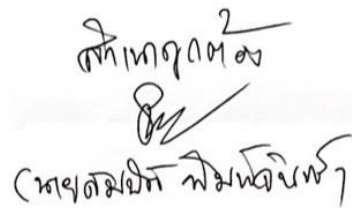 สำเนาถูกต้อง
(นายสมบัติ พิมพ์จันทร์)